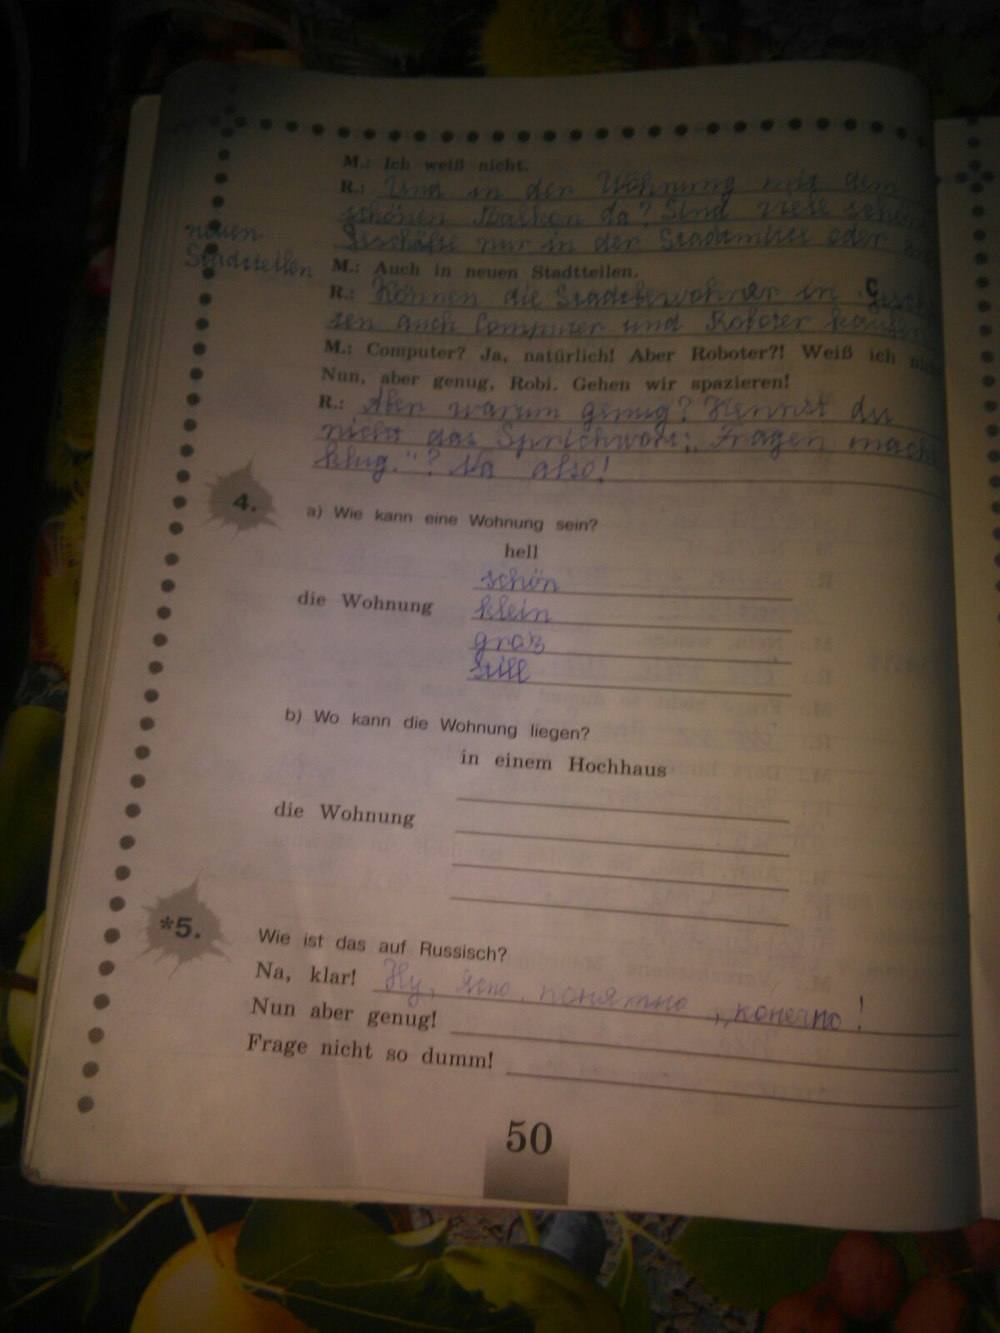 M.: Ich weiß nicht.
R.: Und in der Wohnung mit dem
schönen Balkon da? Sind viele
Geschäfte nur in der Stadtmitte oder
neuen
Stadtteilen
M.: Auch in neuen Stadtteilen.
R.: Können die Stadtbewohner in
auch Computer und Roboter
M.: Computer? Ja, natürlich! Aber Roboter?! Weiß ich
Nun, aber genug, Robi. Gehen wir spazieren!
R.: Aber warum genug? Kennst du
nicht das Sprichwort: „Fragen
klug."? Na also!
4.
a) Wie kann eine Wohnung sein?
hell
schön
die Wohnung
klein
groß
still
b) Wo kann die Wohnung liegen?
in einem Hochhaus
die Wohnung
*5.
Wie ist das auf Russisch?
Na, klar! Ну, ясно, понятно, конечно!
Nun aber genug!
Frage nicht so dumm!
50